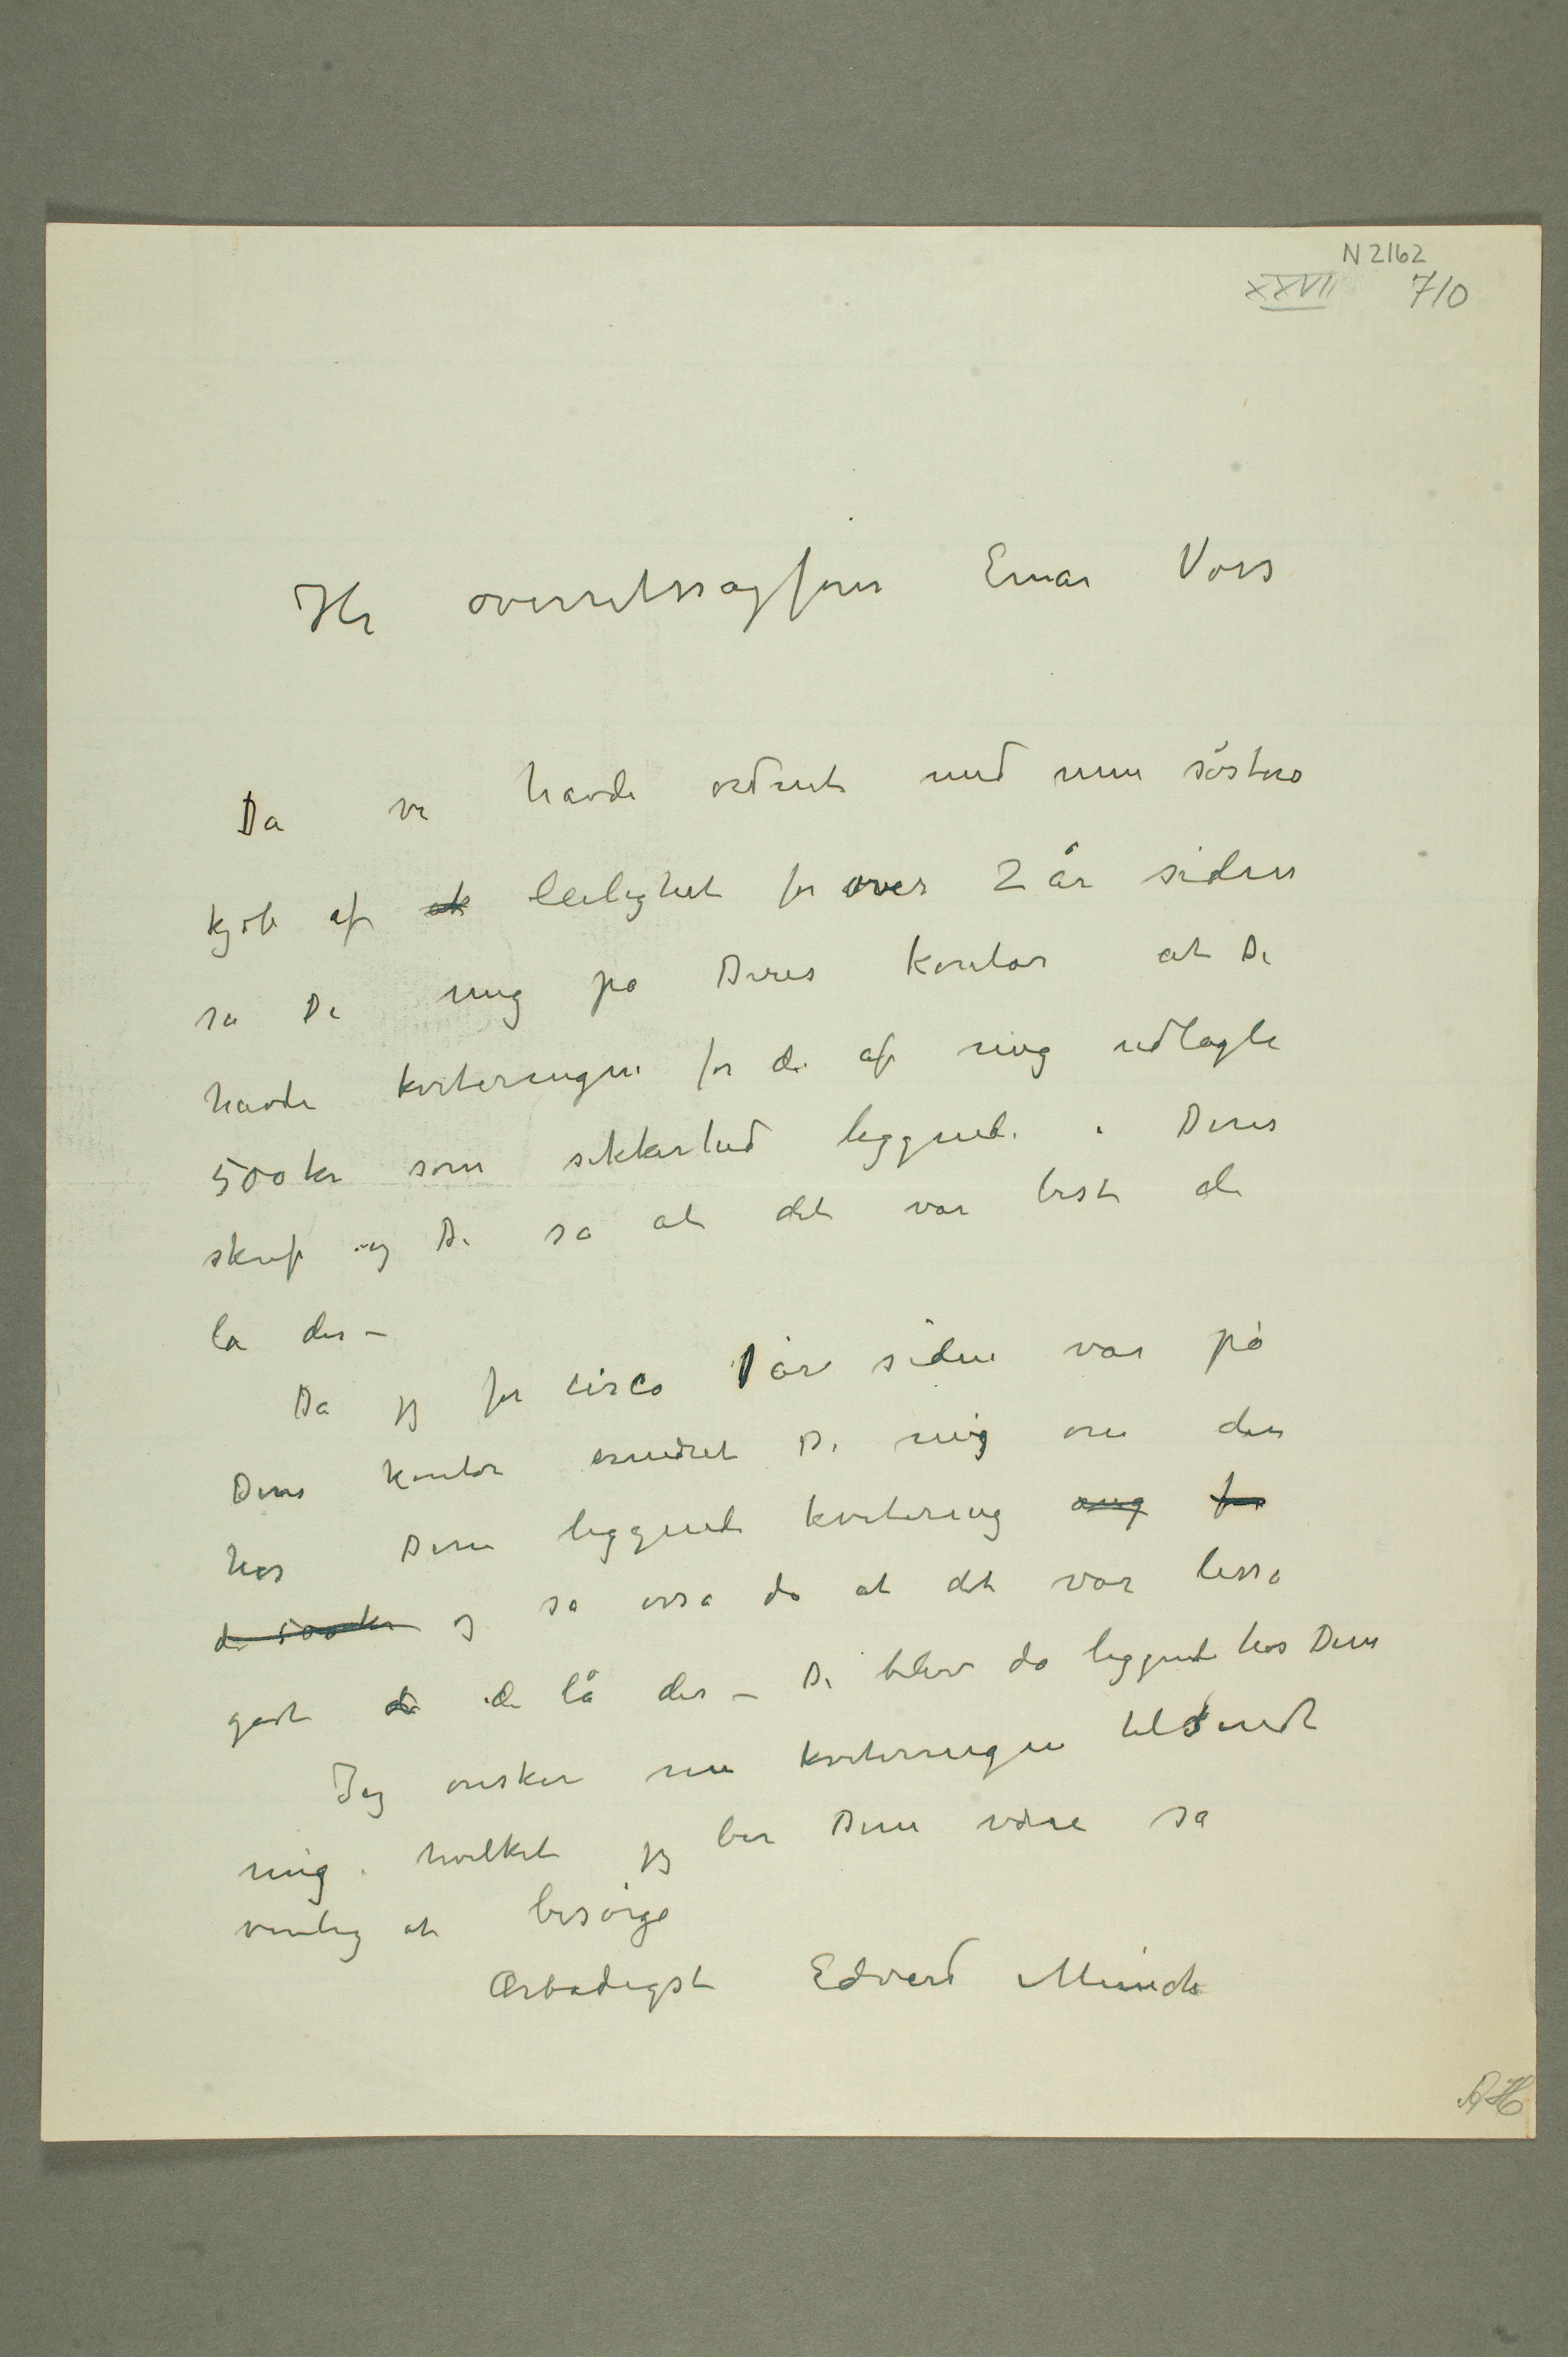 N 2162
XXVII 710
Hr overretssagförer Einar Voss
Da vi havde ordnet med min søsters
kjøb af et leilighet for over 2 år siden
sa De mig på Deres kontor at De
havde kviteringen for de af mig udlagte
500 kr som sikkerhed liggende i Deres
skuf og De sa at det var best de
la der –
Da jeg for circa 1 år siden var på
Deres kontor erindret De mig om den
hos Dem liggende kvitering ang for
de 500 kr og sa ossa da at det var lissa
godt de de lå der – De blev da liggende hos Dem
Jeg ønsker nu kviteringen tilsendt
mig hvilket jeg ber Dem være sa
venlig at besørge
Ærbødigst Edvard Munch
RH